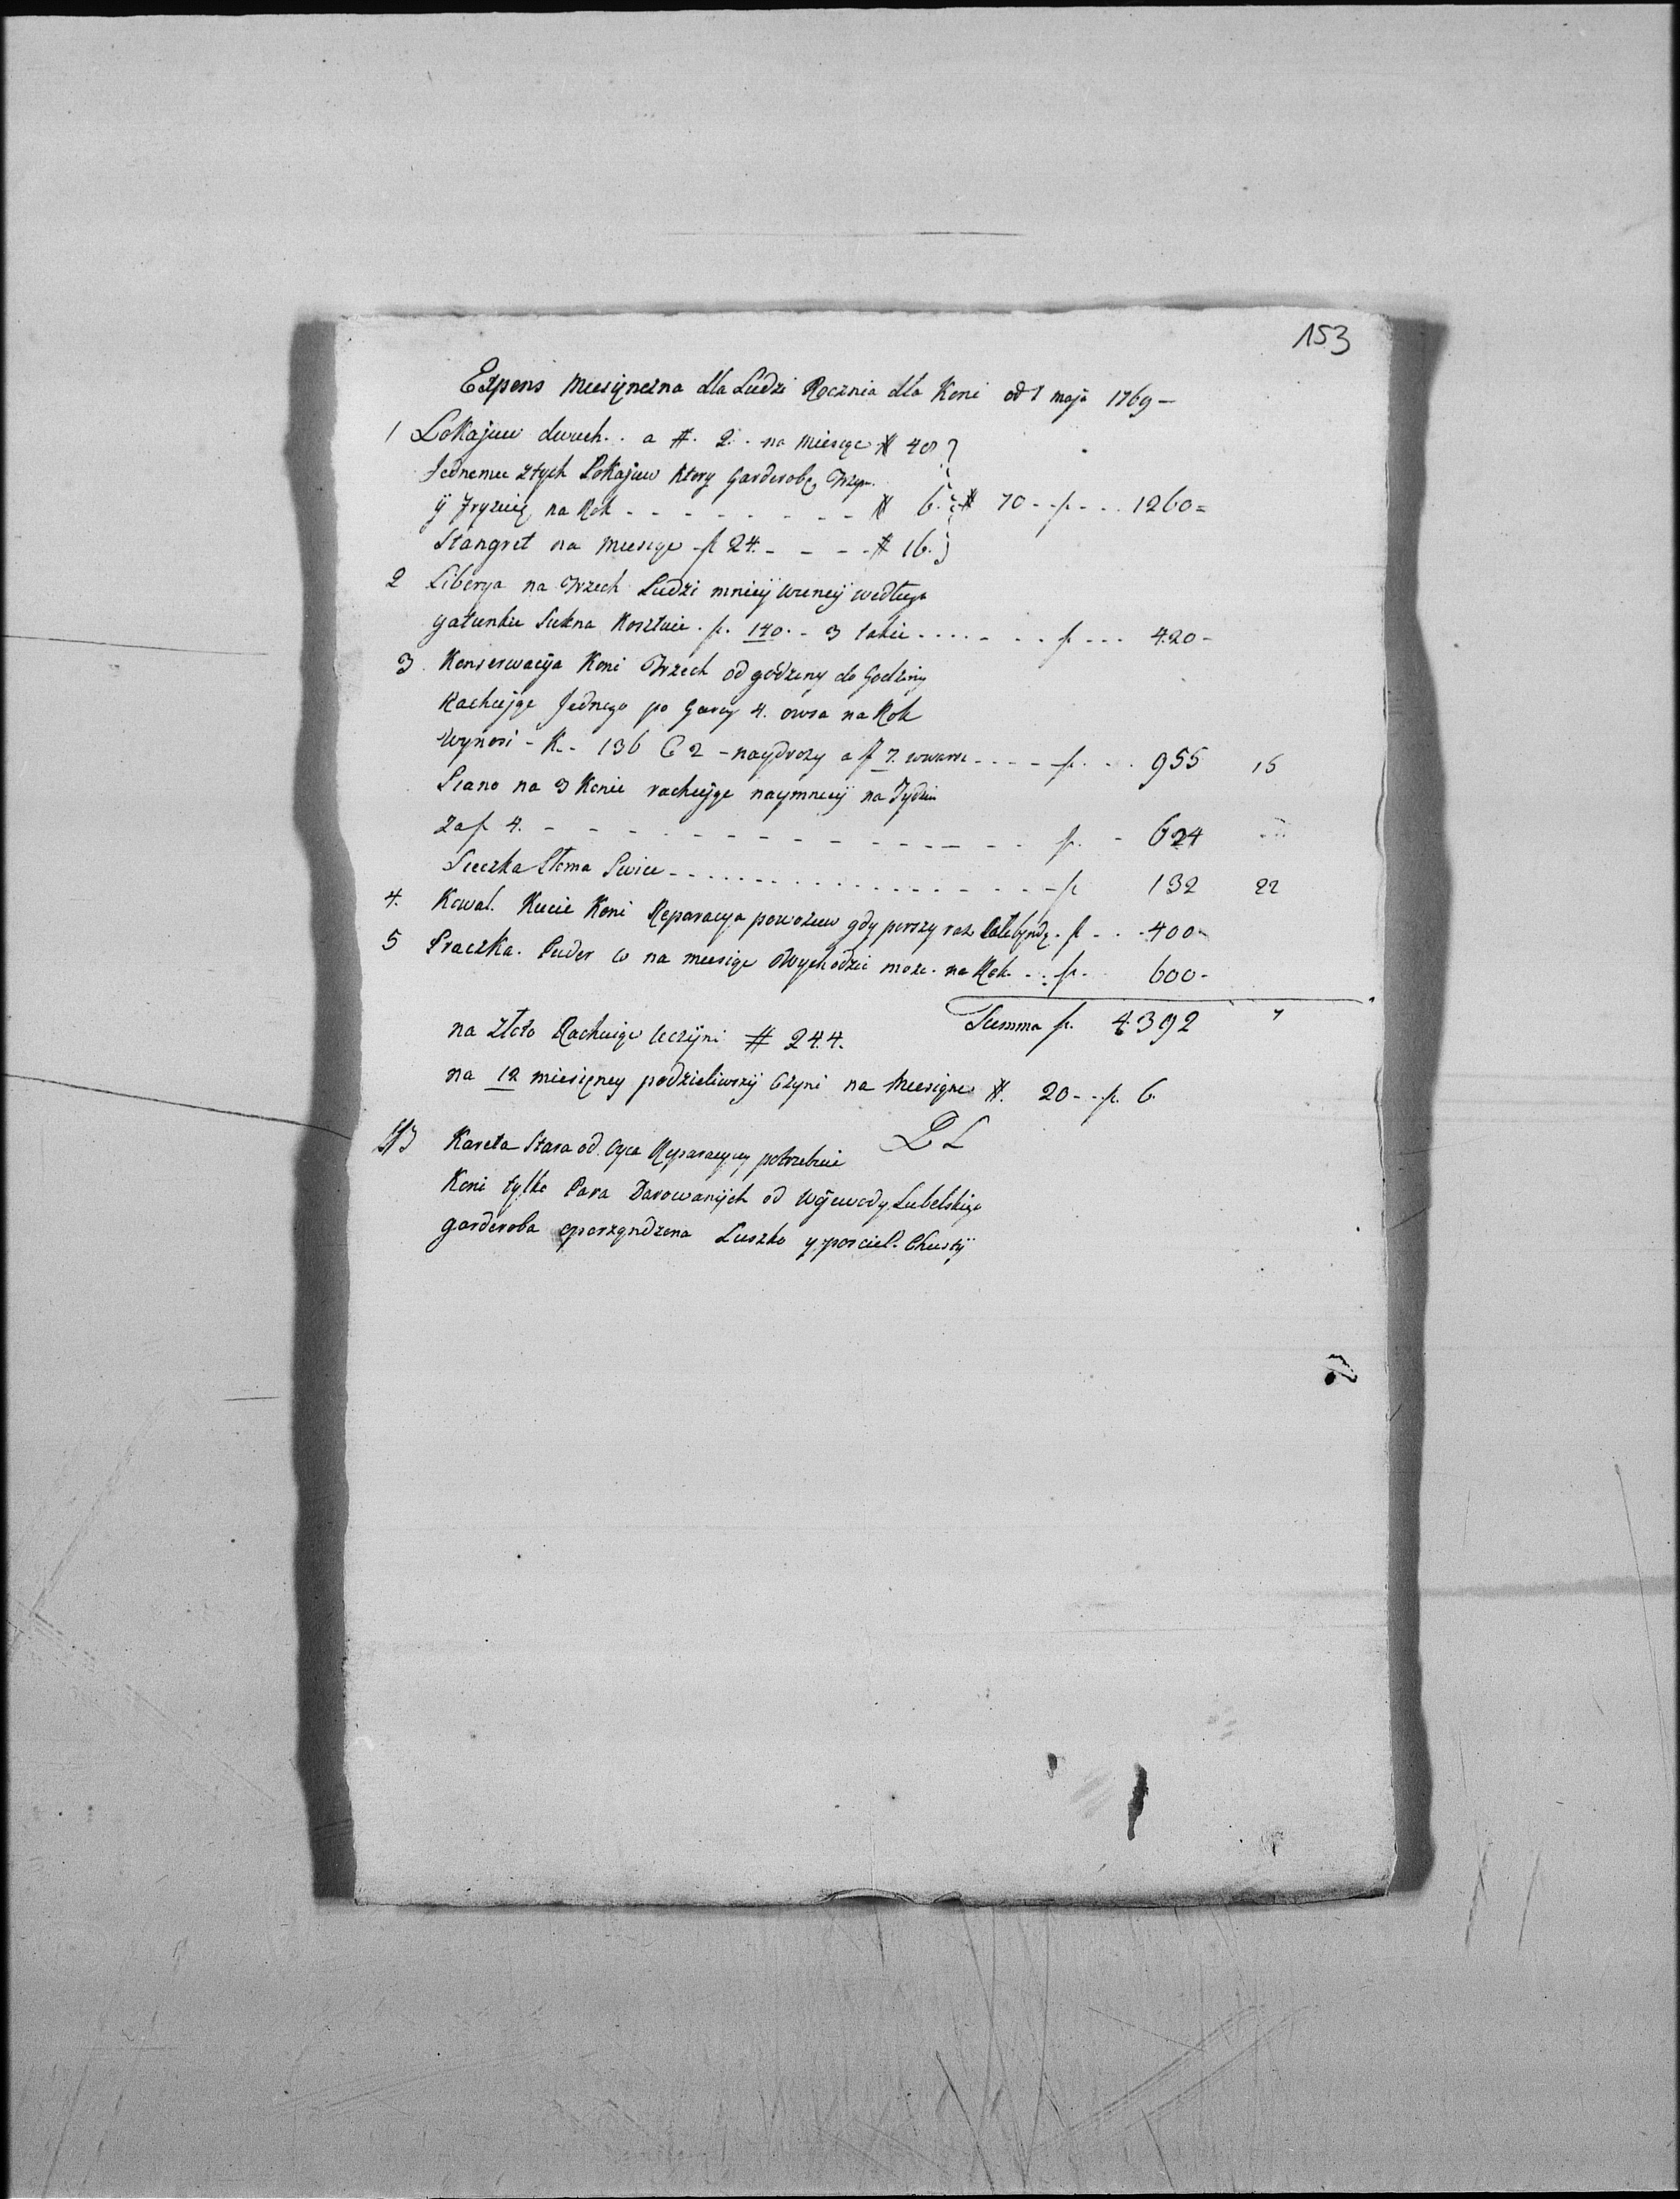 153
Expens Miesięnczna dla Ludzi Rocznia dla Koni od 1 maja 1769 –
1 Lokajuw dwuch . . a #. 2 . . na Miesiąc # 48
Jednemu z tych Lokajuw Ktory Garderobę Trzy.
ÿ Fryzuię na Rok - - - - - - - - # 6. # 70 - - f. - . . 1260 =
Stangret na Miesiąc f 24. - - - - # 16.
2 Liberya na Trzech Ludzi mnieÿ wiencÿ według
gatunku Sukna Kosztuie . f. 140. - 3 takie . . . . - . . f - - . 420 -
3. Konserwacÿa Koni Trzech od godziny do Godziny
Rachując Jednego po Garcy 4. owsa na Rok
Wynosi - K - 136 C 2 - naydrozy a f 7. - - - - - f. . . . 955 15
Siano na 3 Konie rachująe naymnieÿ na Tydzien
za f 4. - - - - - - - - - - - - - - f. - 624
Sieczka Słoma Swice - . . . . . . . . . . . . - - - - f 132 22
4. Kowal. Kucie Koni Reparacya powozuw gdy pierszy raz f - . . 400 -
5 Praczka. Puder co na miesiąc Wychodzic moze. na Rok - . : f. 600 -
Summa f. 4392 7
na złoto Rachuiąc Uczÿni # 244.
na 12 miesięncy podzieliwszÿ Czyni na Miesiąnc #. 20 - - f. 6.
Kareta Stara od Oyca Reparacyey potrzebuie
Koni tylko Para Darowanÿch od Woÿewody Lubelskiego
garderoba oporzątndzona Luszko y posciel. Chustÿ